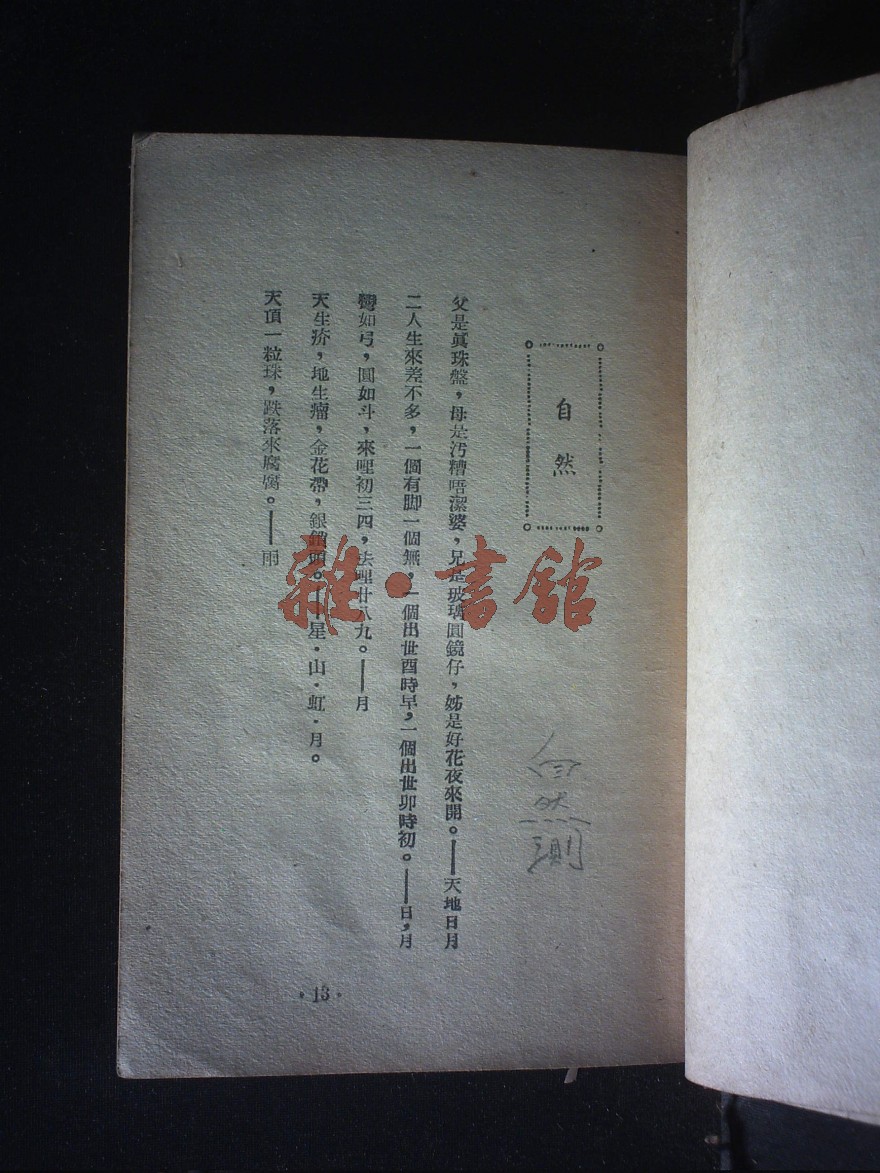 自然
父是眞珠盤，母是汚糟唔潔婆，兄是玻璃圓鏡仔，姊是好花夜來開。——天地日月
二人生來差不多，一個有脚一個無，一個出世酉時早，一個出世卯時初。——日，月
彎如弓，圓如斗，來哩初三四，去哩廿八九。——月
天生疥，地生瘤，金花帶，銀鎖頭。——星·山·虹·月。
天頂一粒珠，跌落來腐腐。——雨
·13·
雜·書館